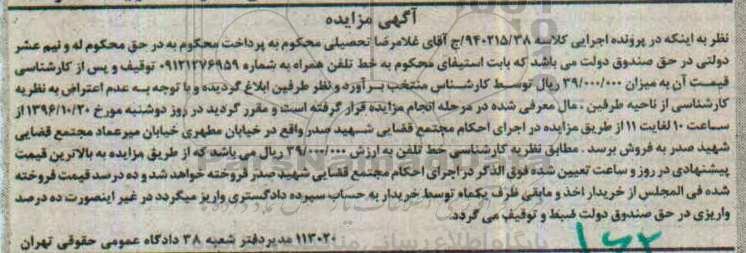 آگهی مزایده
نظر به اینکه در پرونده اجرایی کلاسه ۹۴۰۲۱۵/۳۸/ج آقای غلامرضا تحصیلی محکوم به پرداخت محکوم به در حق محکوم له و نیم عشر
دولتی در حق صندوق دولت می باشد که بابت استیفای محکوم به خط تلفن همراه به شماره ۰۹۱۲۱۲۷۶۹۵۹ توقیف و پس از کارشناسی
قیمت آن به میزان ۳۹/۰۰۰/۰۰۰ ریال توسط کارشناس منتخب برآورد و نظر طرفین ابلاغ گردیده و با توجه به عدم اعتراض به نظریه
کارشناسی از ناحیه طرفین . مال معرفی شده در مرحله انجام مزایده قرار گرفته است و مقرر گردید در روز دوشنبه مورخ ۱۳۹۶/۱۰/۲۰ از
ساعت ۱۰ لغایت ۱۱ از طریق مزایده در اجرای احکام مجتمع قضایی شهید صدر واقع در خیابان مطهری خیابان میرعماد مجتمع قضایی
شهید صدر به فروش برسد . مطابق نظریه کارشناسی خط تلفن به ارزش ۳۹/۰۰۰/۰۰۰ ریال می باشد که از طریق مزایده به بالاترین قیمت
پیشنهادی در روز و ساعت تعیین شده فوق الذکر در اجرای احکام مجتمع قضایی شهید صدر فروخته خواهد شد و ده درصد قیمت فروخته
شده فی المجلس از خریدار اخذ و مابقی ظرف یکماه توسط خریدار به حساب سپرده دادگستری واریز میگردد در غیر اینصورت ده درصد
واریزی در حق صندوق دولت ضبط و توقیف می گردد.
۱۱۳۰۲۰ مدیر دفتر شعبه ۳۸ دادگاه عمومی حقوقی تهران